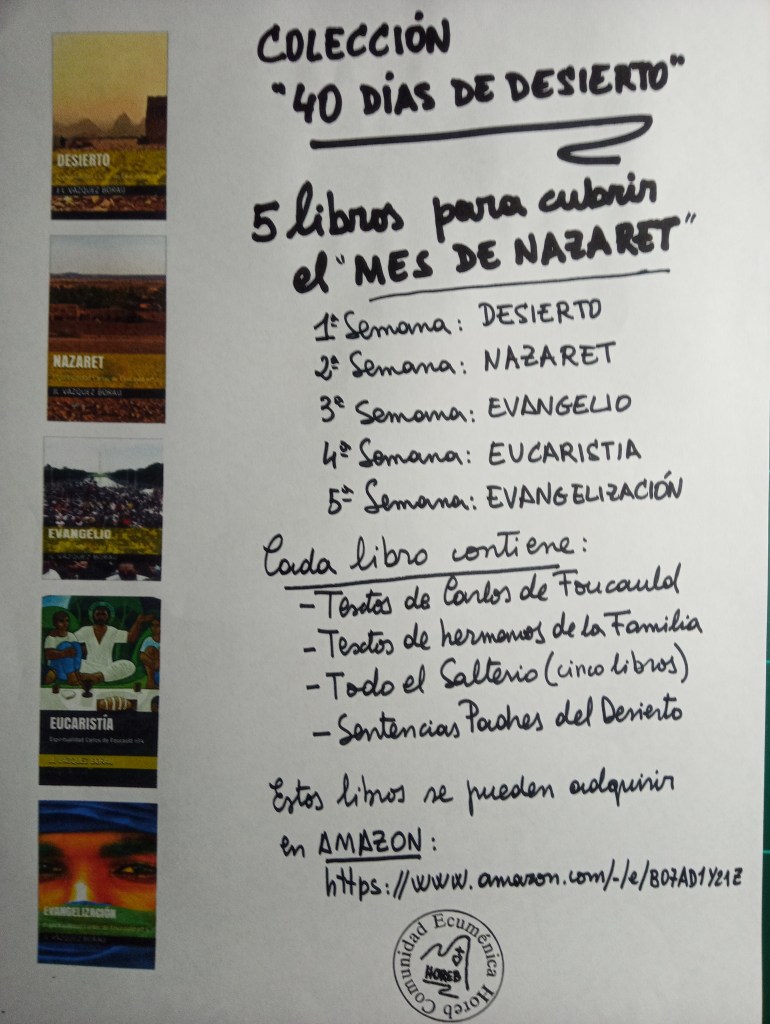 COLECCIÓN
"40 DÍAS DE DESIERTO"
5 libros para cubrir
el "MES DE NAZARET"
1ª Semana: DESIERTO
2ª Semana: NAZARET
3ª Semana: EVANGELIO
4ª Semana: EUCARISTIA
5ª Semana: EVANGELIZACIÓN
Cada libro contiene:
- Textos de Carlos de Foucauld
- Textos de hermanos de la Familia
- Todo el Salterio (cinco libros)
- Sentencias Padres del Desierto
Estos libros se pueden adquirir
en AMAZON:
https://www.amazon.com/-/e/B07AD1Y21Z
Comunidad Ecuménica Horeb
HOREB
DESIERTO
VÁZQUEZ BORAU
NAZARET
VÁZQUEZ BORAU
EVANGELIO
VÁZQUEZ BORAU
EUCARISTÍA
Espiritualidad Carlos de Foucauld nº4
VÁZQUEZ BORAU
EVANGELIZACIÓN
VÁZQUEZ BORAU